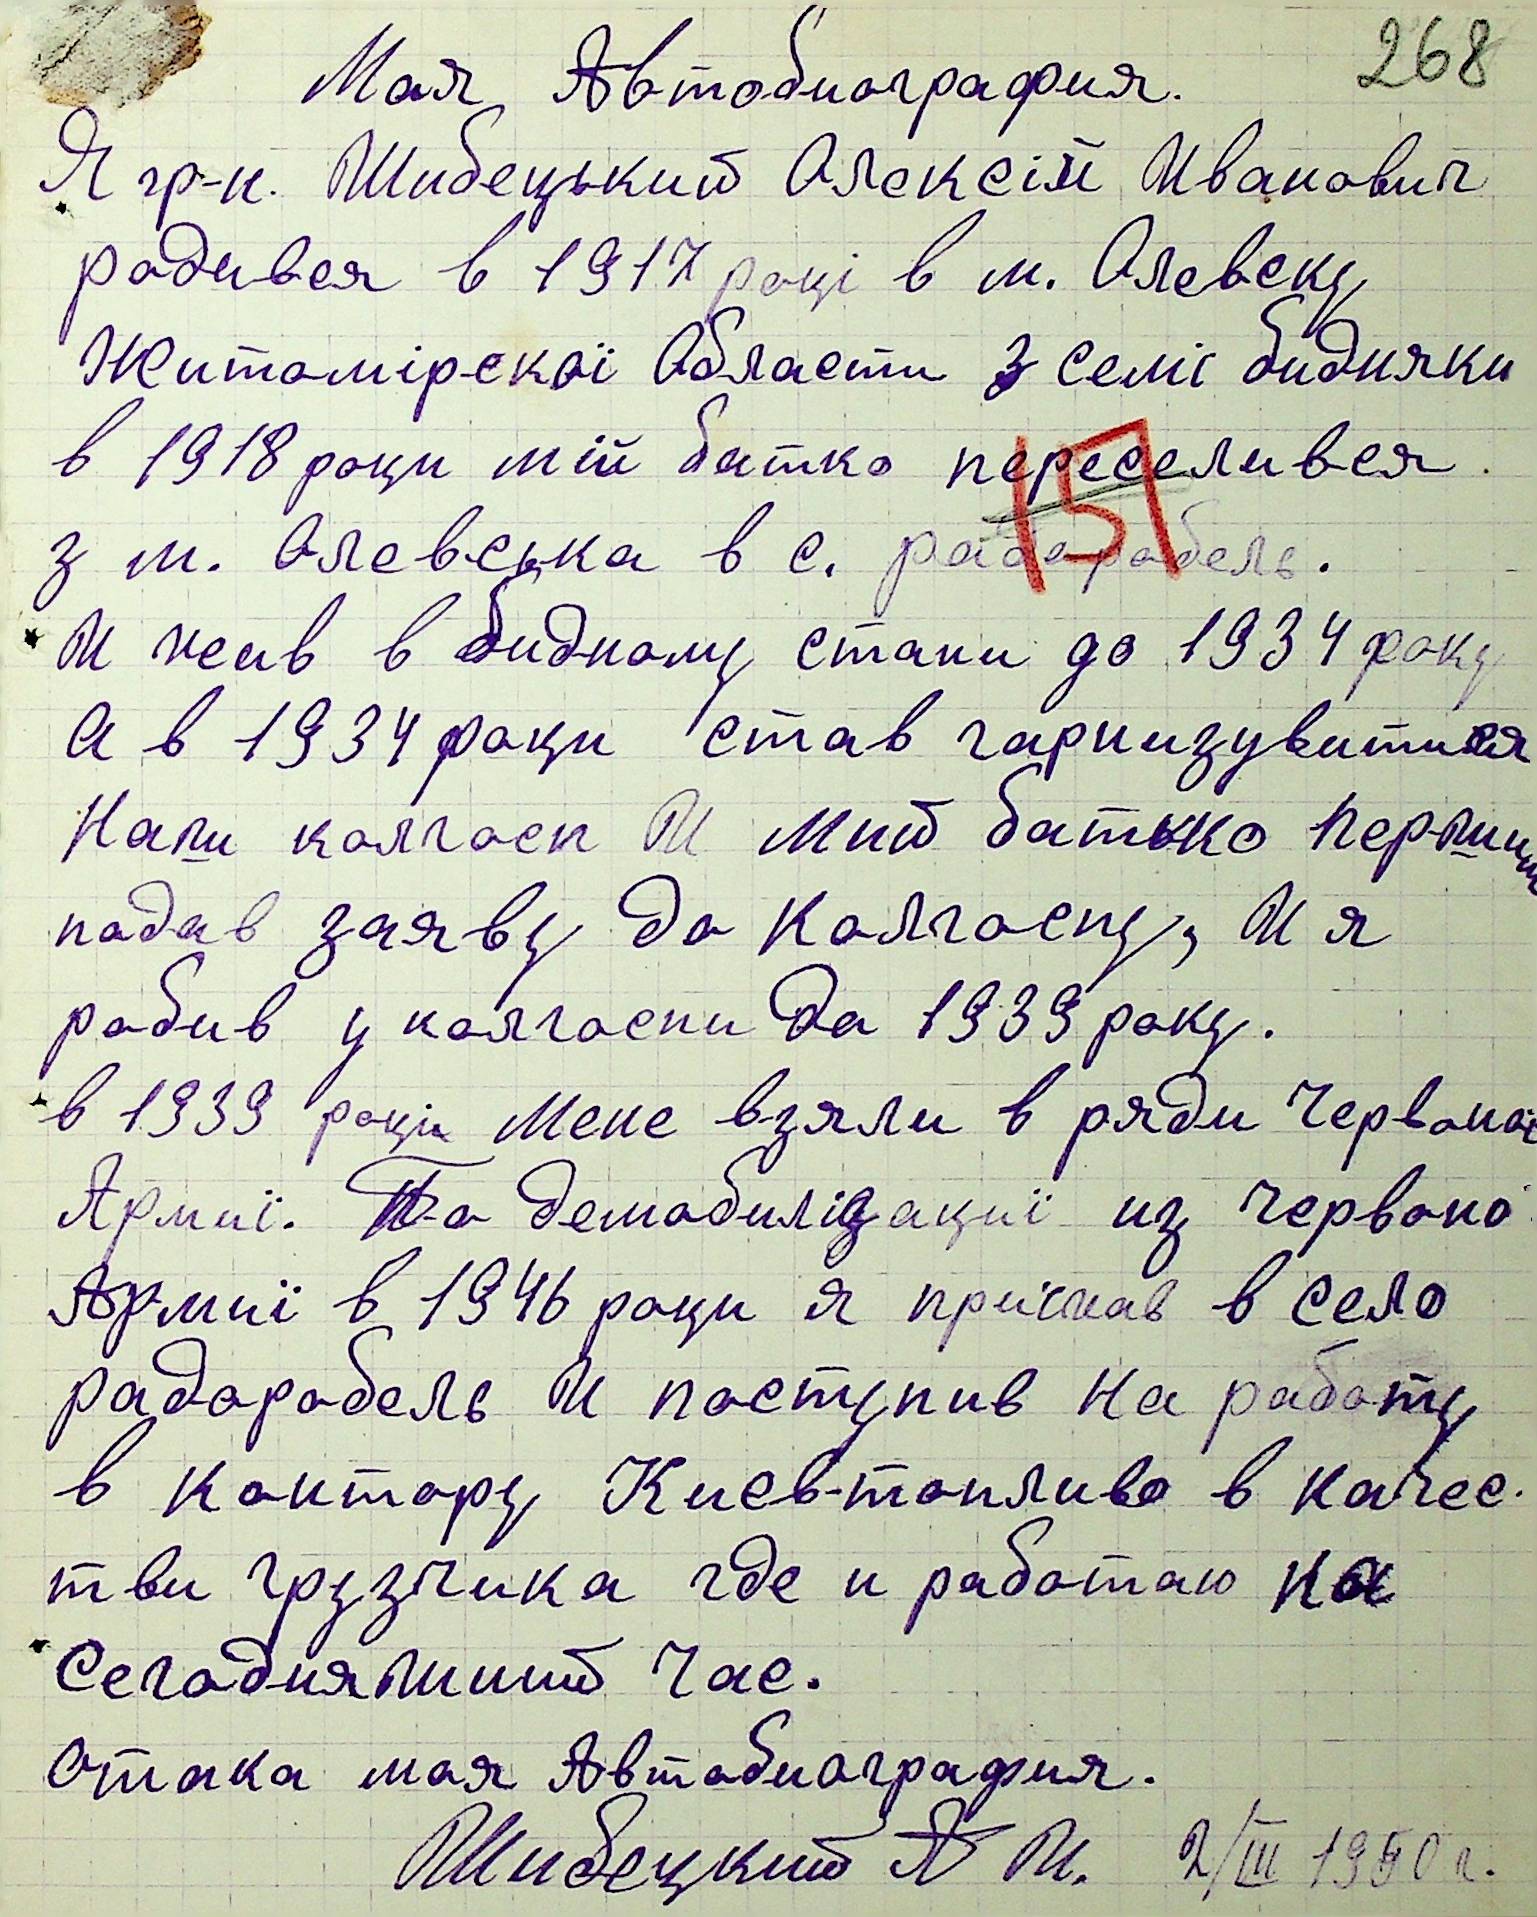 268
Мая Автобиография.
Я гр-н. Шибецький Олексій Иванович
радивея в 1917 році в м. Олевску
Житомірскої Области з семі бидняки
в 1918 роци мій батко переселивея
151
з м. Олевська в с. радоробель.
И жив в бидному стани до 1934 року
а в 1934 роци став гарнизувитися
Наши колгосп И мий батько перший
подав заяву до Колгоспу, И я
робив у колгоспи да 1939 року.
в 1939 роци Мене взяли в ряди Червоной
Армиї. По демобилізациї из червоно
Армиї в 1946 роци я приїхав в село
радоробель И поступив на работу
в контору Киев-топливо в качес.
тви грузчика где и работаю на
Сегодняшний час.
Отака моя Автобиография.
Шибецкий А И. 2/III 1950 г.